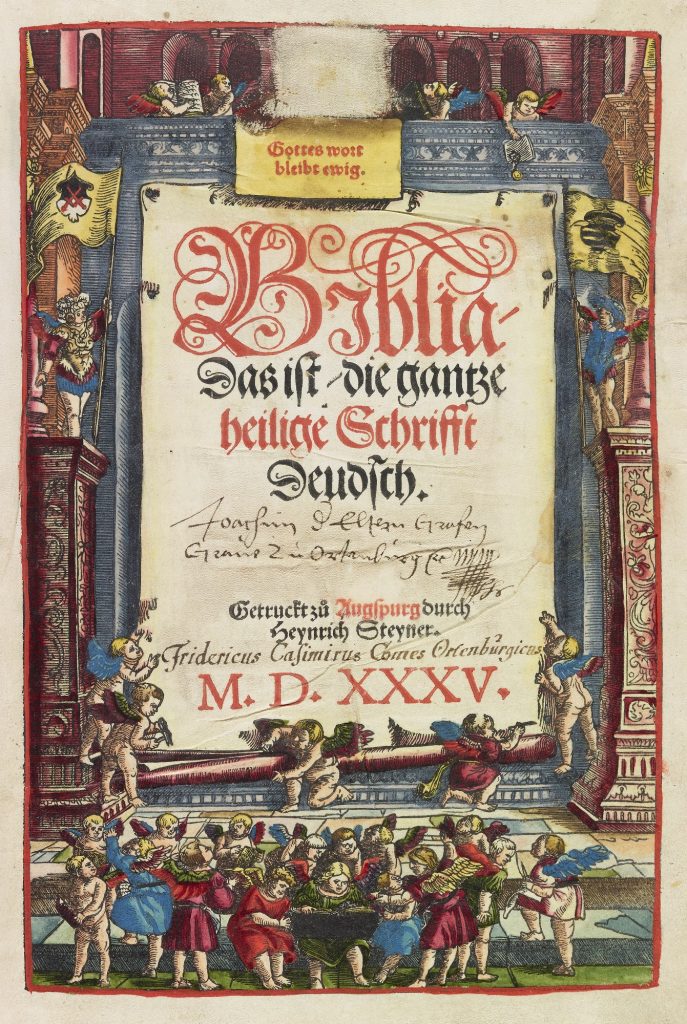 Gottes wort
bleibt ewig.
Biblia
Das ist / die gantze
heilige Schrifft
Deudsch.
Joachim d Eltern Grafen
Graue zu Ortenburg
Getruckt zů Augspurg durch
Heynrich Steyner.
Fridericus Casimirus Comes Ortenburgicus
M. D. XXXV.